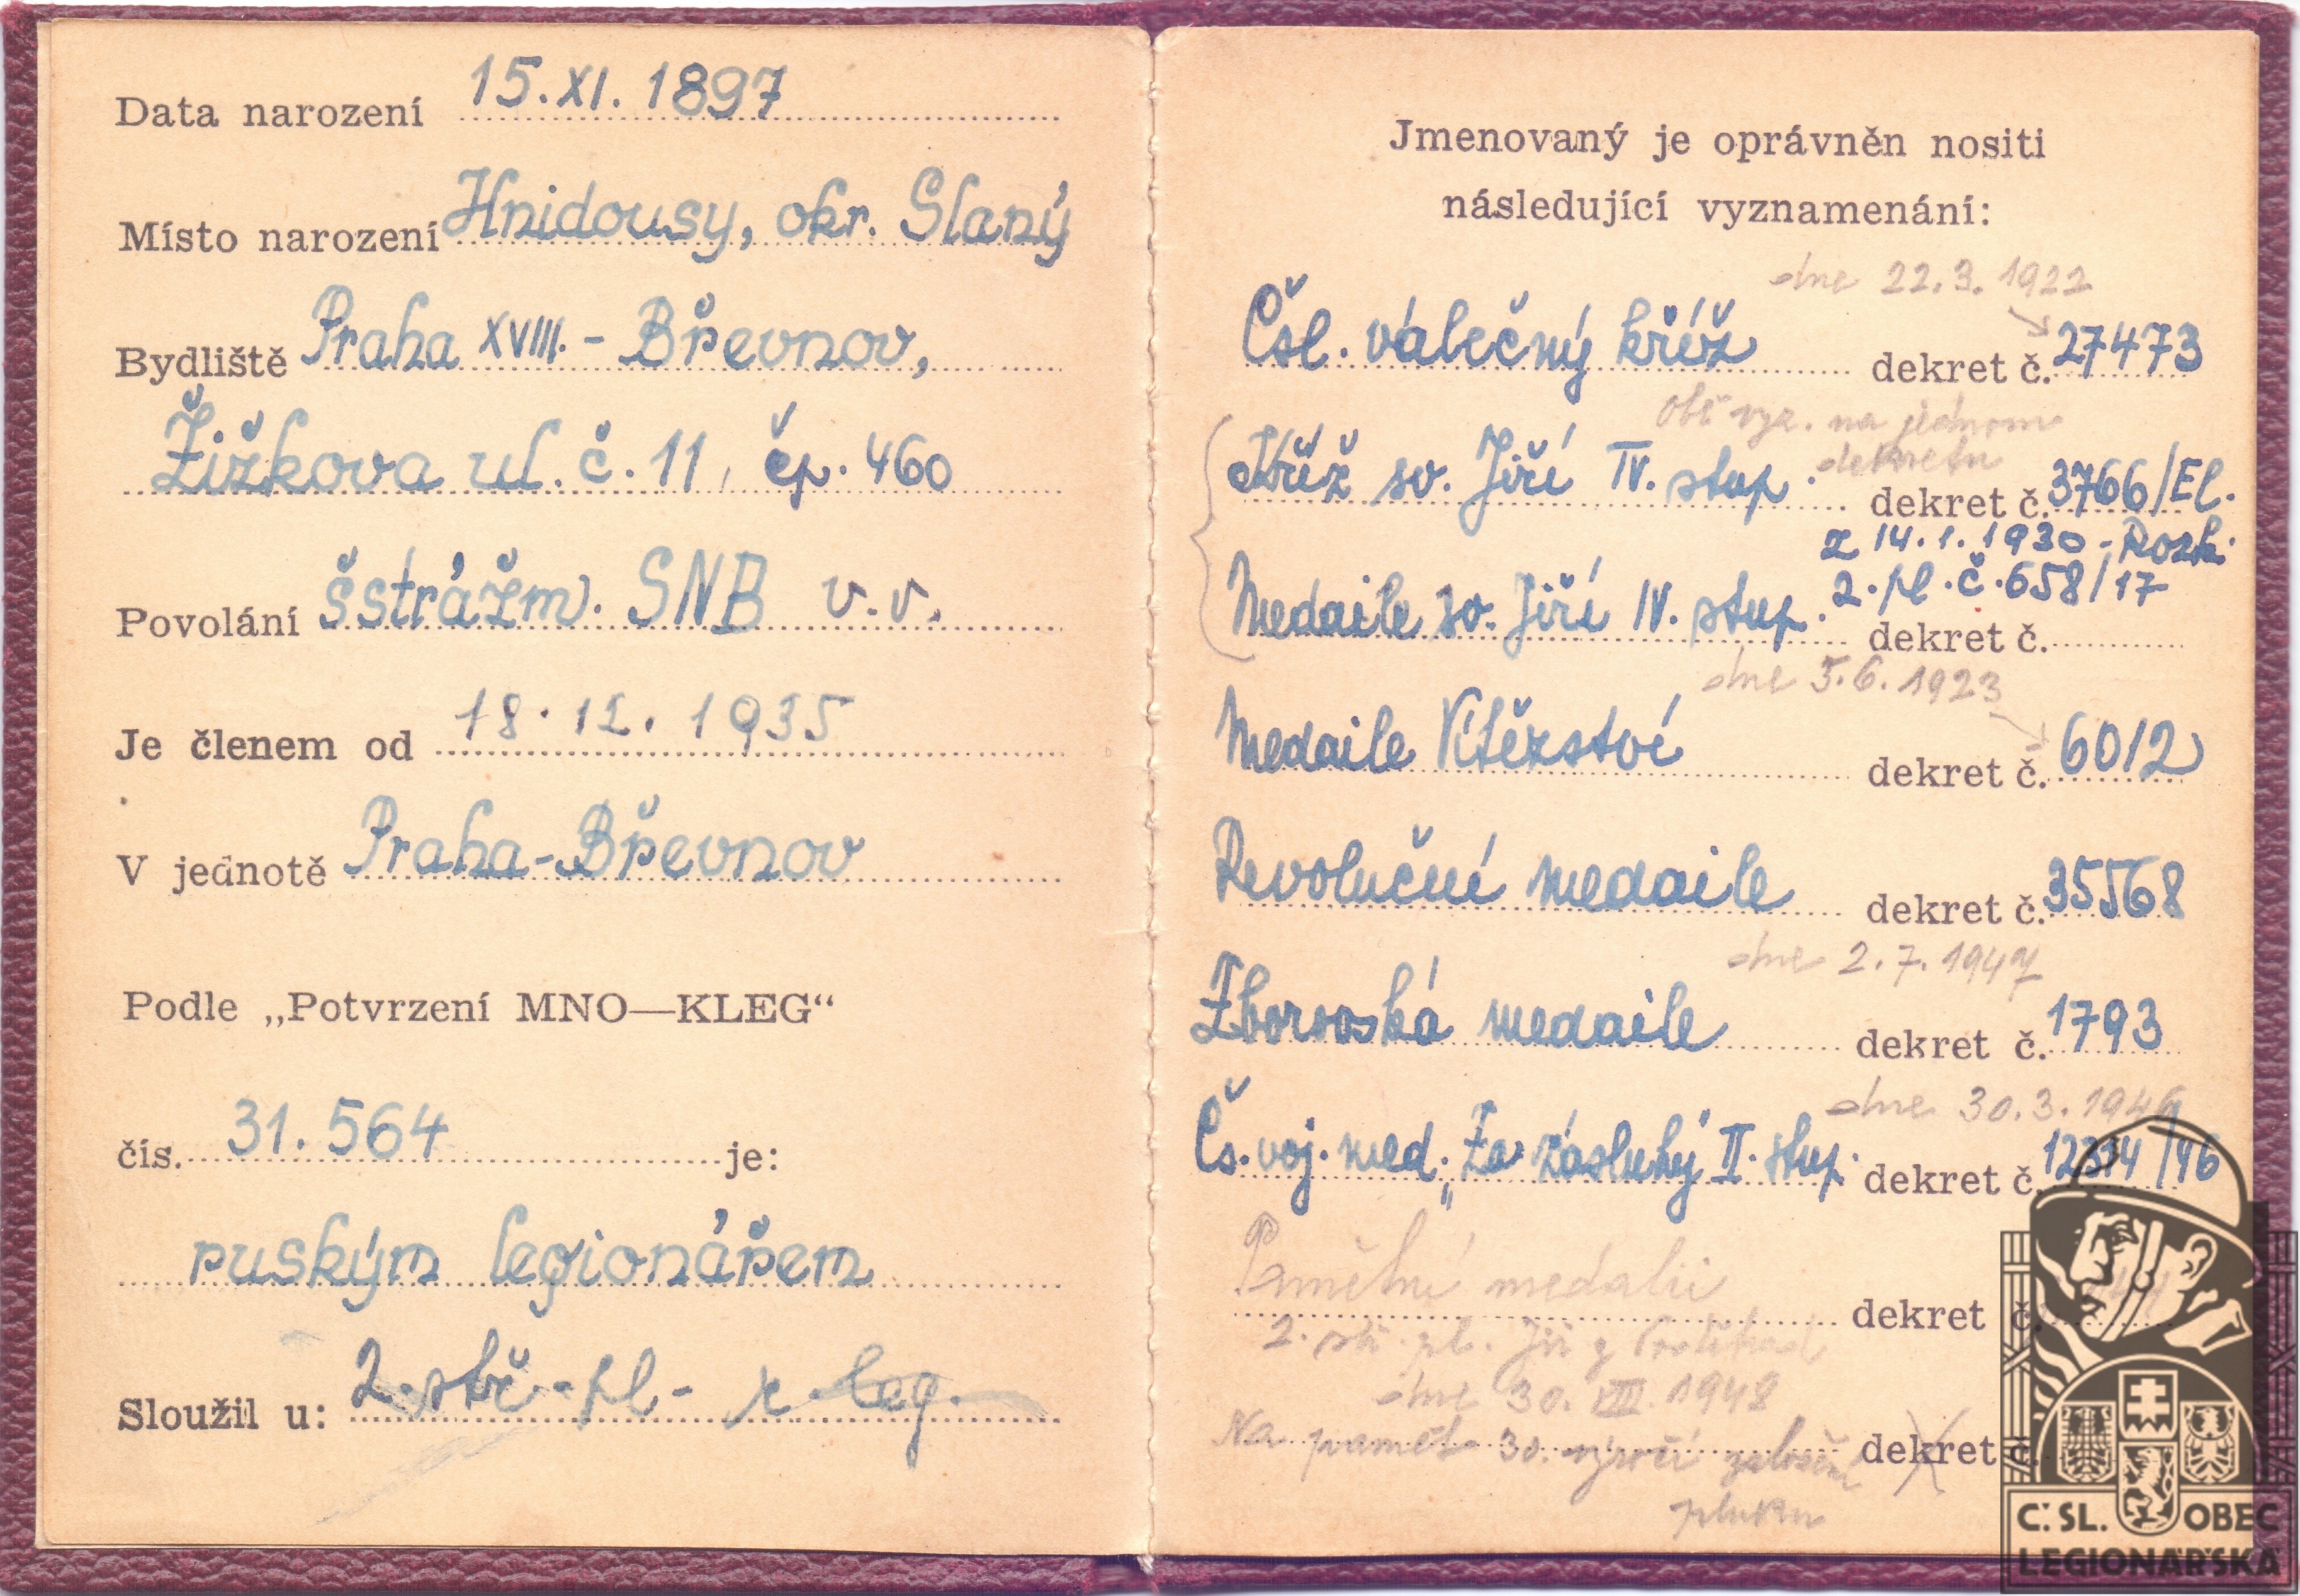 Data narození 15. XI. 1897
Místo narození Hnidousy, okr. Slaný
Bydliště Praha XVIII. - Břevnov,
Žižkova ul. č. 11, čp. 460
Povolání šstrážm. SNB v. v.
Je členem od 18. 12. 1935
V jednotě Praha-Břevnov
Podle „Potvrzení MNO—KLEG“
čís. 31.564 je:
ruským legionářem
Sloužil u: 2. stř. - pl - x leg.
Jmenovaný je oprávněn nositi
následující vyznamenání:
dne 22. 3. 1922
Čsl. válečný kříž dekret č. 27473
Obě vyz. na jednom
dekretu
Kříž sv. Jiří IV. stup. dekret č. 3766/El.
z 14. 1. 1930 - Rozk.
2. pl. č. 658/17
Medaile sv. Jiří IV. stup. dekret č.
dne 5. 6. 1923
Medaile Vítězství dekret č. 6012
Revoluční medaile dekret č. 35568
dne 2. 7. 1947
Zborovská medaile dekret č. 1793
dne 30. 3. 1946
Čs. voj. med. „Za zásluhy" II. stup. dekret č. 12314/46
Pamětní medalii dekret č.
2. stř. pl. Jiř. z Poděbrad
dne 30. VIII. 1948
Na paměť 30. výročí založení dekret č.
pluku
Č. SL. OBEC
LEGIONÁŘSKÁ